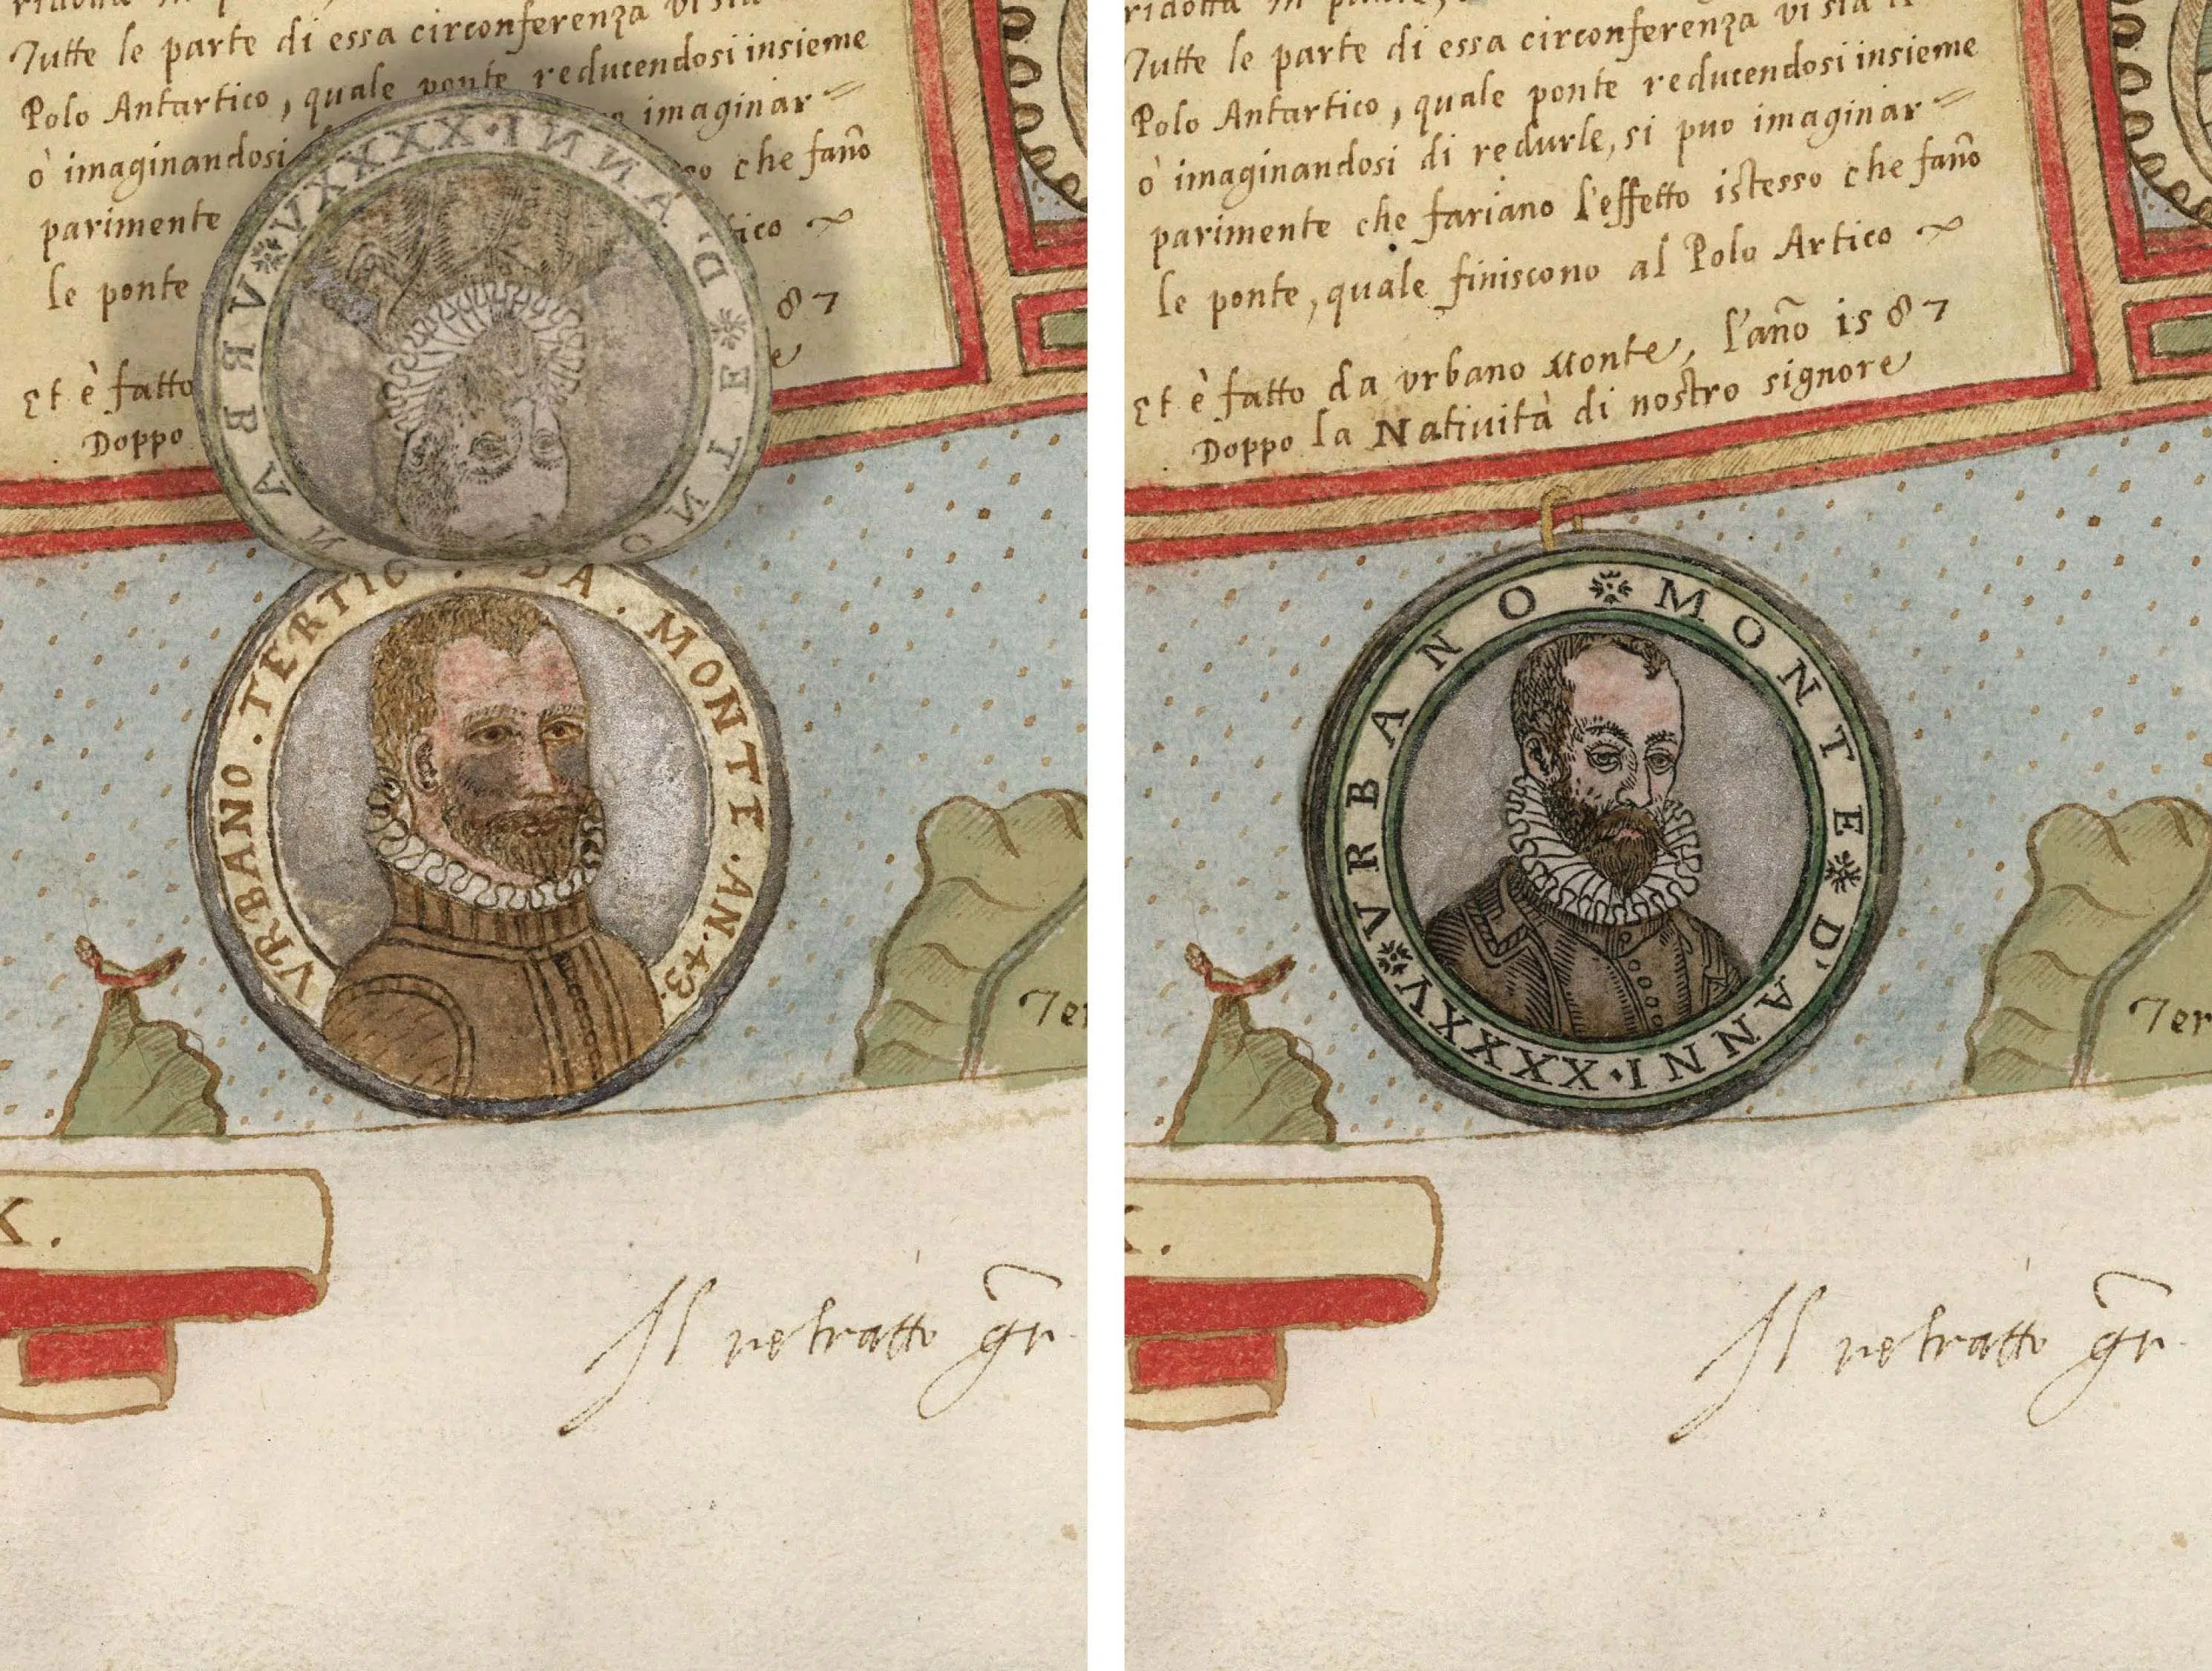 Tutte le parte di essa circonferenza vi sia
Polo Antartico, quale ponte reducendosi insieme
ò imaginandosi imaginar
parimente che fano
le ponte
87
Et è fatto
Doppo
VRBANO MONTE D'ANNI·XXXXV
VRBANO · TERTIO · DA · MONTE · AN · 43
Il retratto
ridotta in
Tutte le parte di essa circonferenza vi sia
Polo Antartico, quale ponte reducendosi insieme
ò imaginandosi di redurle, si puo imaginar
parimente che fariano l'effetto istesso che fano
le ponte, quale finiscono al Polo Artico
Et è fatto da vrbano Monte, l'año is87
Doppo la Natiuità di nostro signore
VRBANO MONTE D'ANNI·XXXXV
Ter
Il retratto